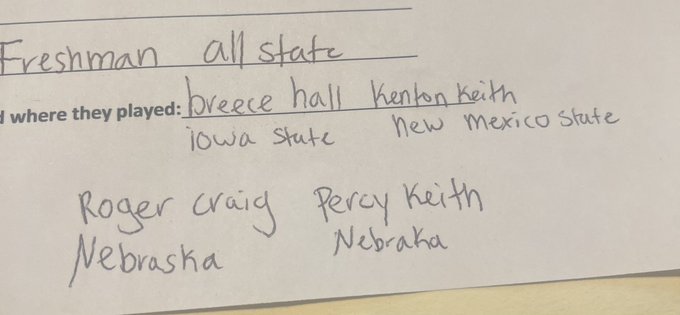 Freshman all state
d where they played: breece hall Kenton Keith
iowa state new mexico state
Roger craig Percy Keith
Nebraska Nebraka